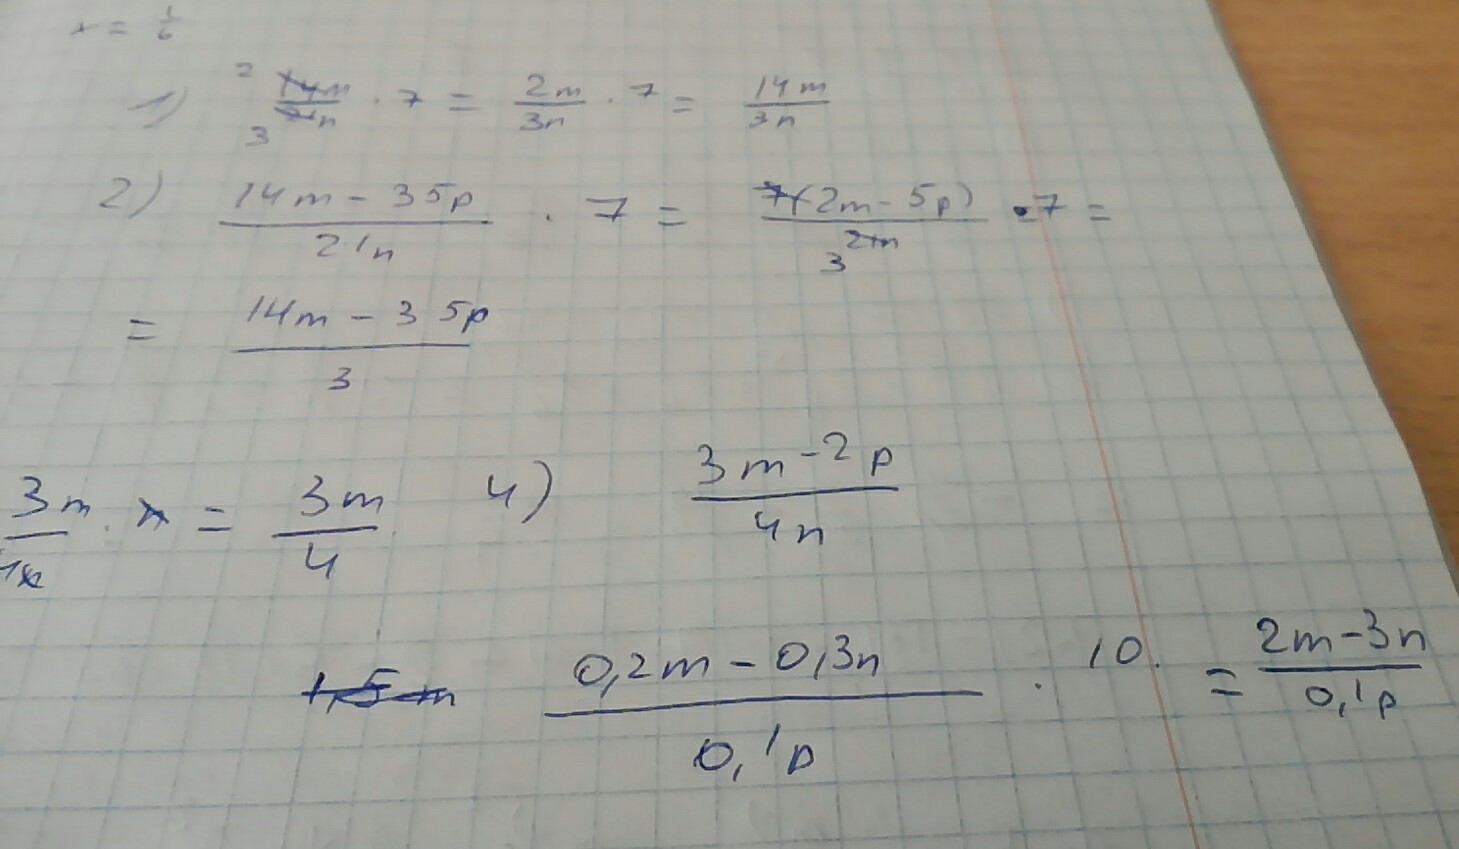 x = 1/6
1) 2 14m/21n 3 · 7 = 2m/3n · 7 = 14m/3n
2) 14m - 35p/21n · 7 = 7(2m - 5p)/21n 3 · 7 =
= 14m - 35p/3
3m/4x · x = 3m/4 4) 3m - 2p/4n
1,5m 0,2m - 0,3n/0,1p · 10 = 2m - 3n/0,1p